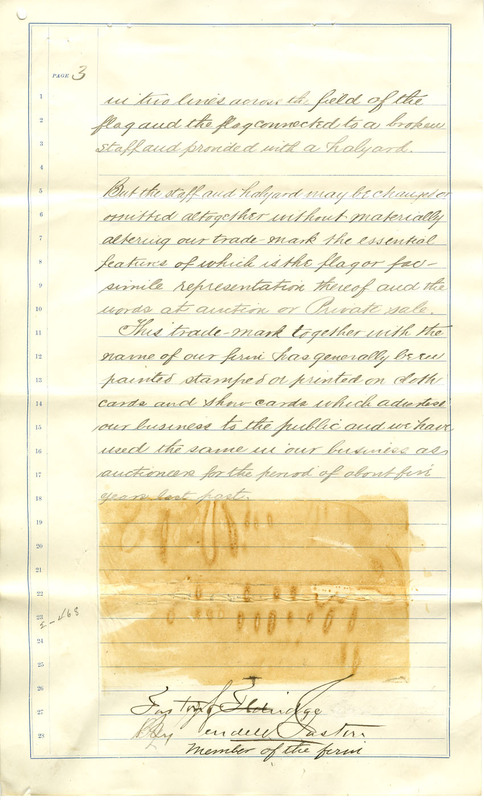 PAGE 3
1
in two lines across the field of the
2
flag and the flag connected to a broken
3
staff and provided with a halyard.
4
5
But the staff and halyard may be changed or
6
omitted altogether without materially
7
altering our trade-mark the essential
8
features of which is the flag or fac-
9
simile representation thereof and the
10
words at auction or Private sale.
11
This trade-mark together with the
12
name of our firm has generally been
13
painted stamped or printed on cloth
14
cards and show cards which advertised
15
our business to the public and we have
16
used the same in our business as
17
auctioneers for the period of about five
18
years last past.
19
20
21
22
23
24
25
26
Easton & Eldridge
27
By Wendell Easton
28
Member of the firm